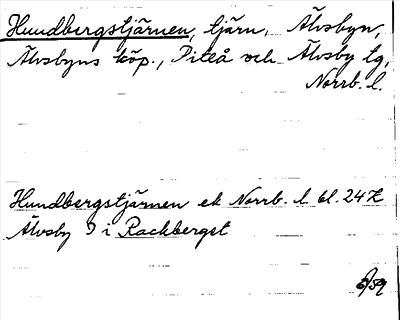 Hundbergstjärnen, tjärn, Älvsbyn,
Älvsbyns köp., Piteå och Älvsby tg,
Norrb. l.
Hundbergstjärnen ek Norrb. l bl. 24 K
Älvsby 9 i Rackberget